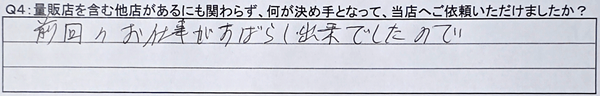 Q4:量販店を含む他店があるにも関わらず、何が決め手となって、当店へご依頼いただけましたか?
前回のお仕事がすばらし出来でしたので